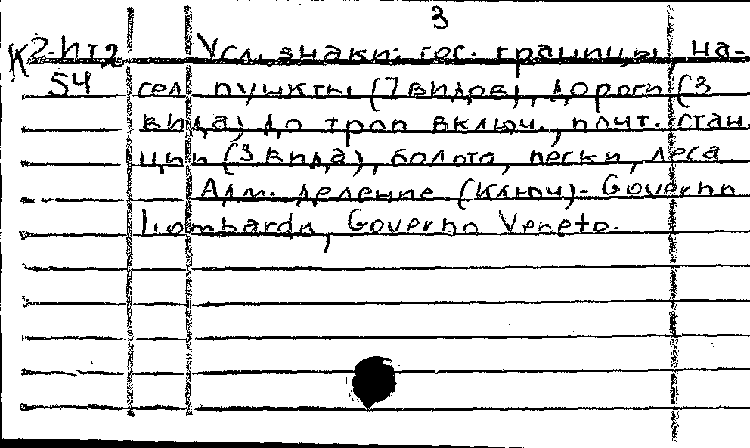 3
К 2-Ит.2 Усл. знаки: гос. границы, на-
54 сел. пункты (7 видов), дороги (3
вида) до троп включ., почт. стан-
ции (3 вида), болота, пески, леса
Адм. деление (ключ)- Governo
Lombardo, Governo Veneto.